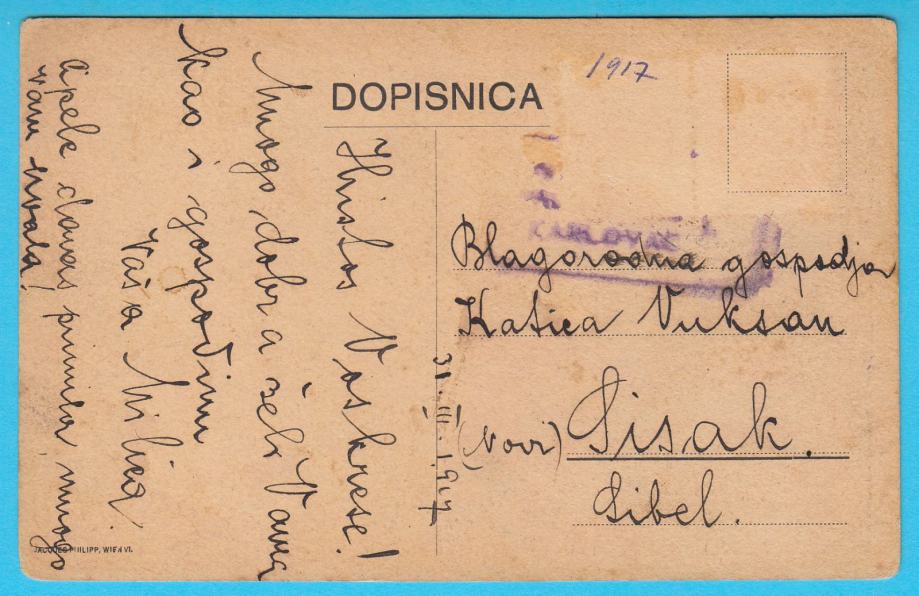 1917
DOPISNICA
Hristos Voskrese!
Mnogo dobra želi Vama
kao i gospođini
Vaša Milica.
danas primila mnogo
vam hvala!
31. III. 1917
KARLOVAC
Blagorodna gospodja
Katica Vuksan
(Novi) Sisak.
Sibel.
JACQUES PHILIPP, WIEN VI.